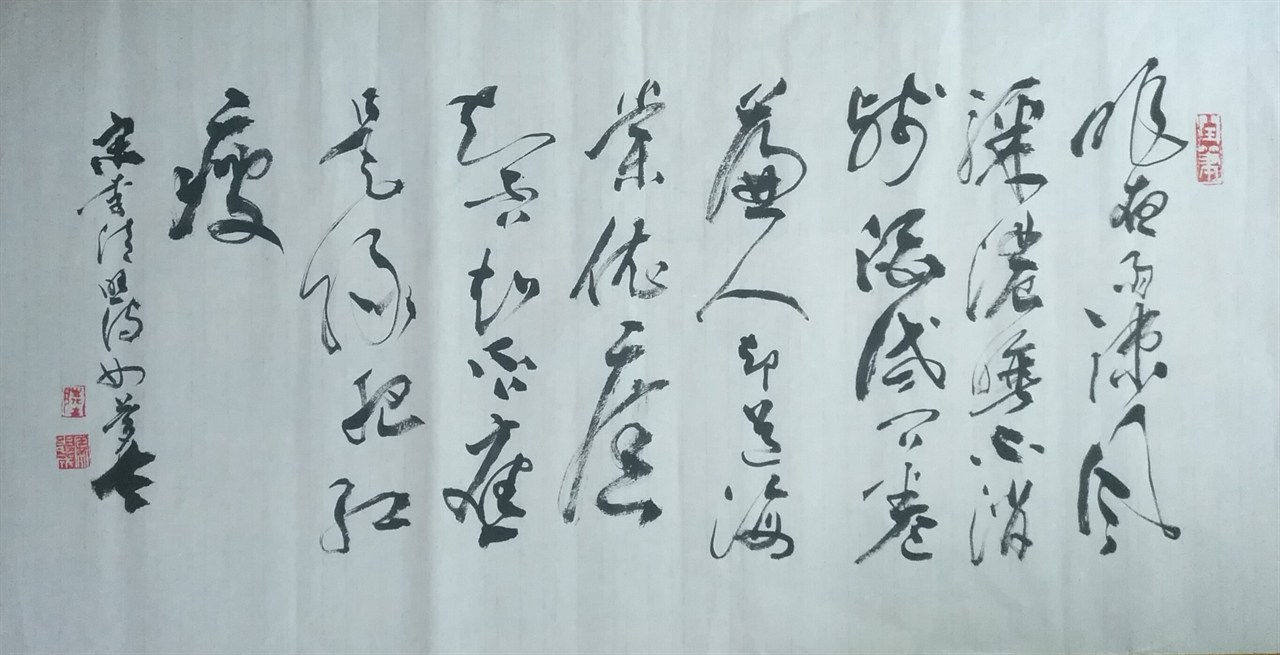 昨夜雨疎风
骤濃睡不消
残酒试问卷
簾人却道海
棠依旧
知否知否應
是绿肥红
瘦
宋李清照词如夢令